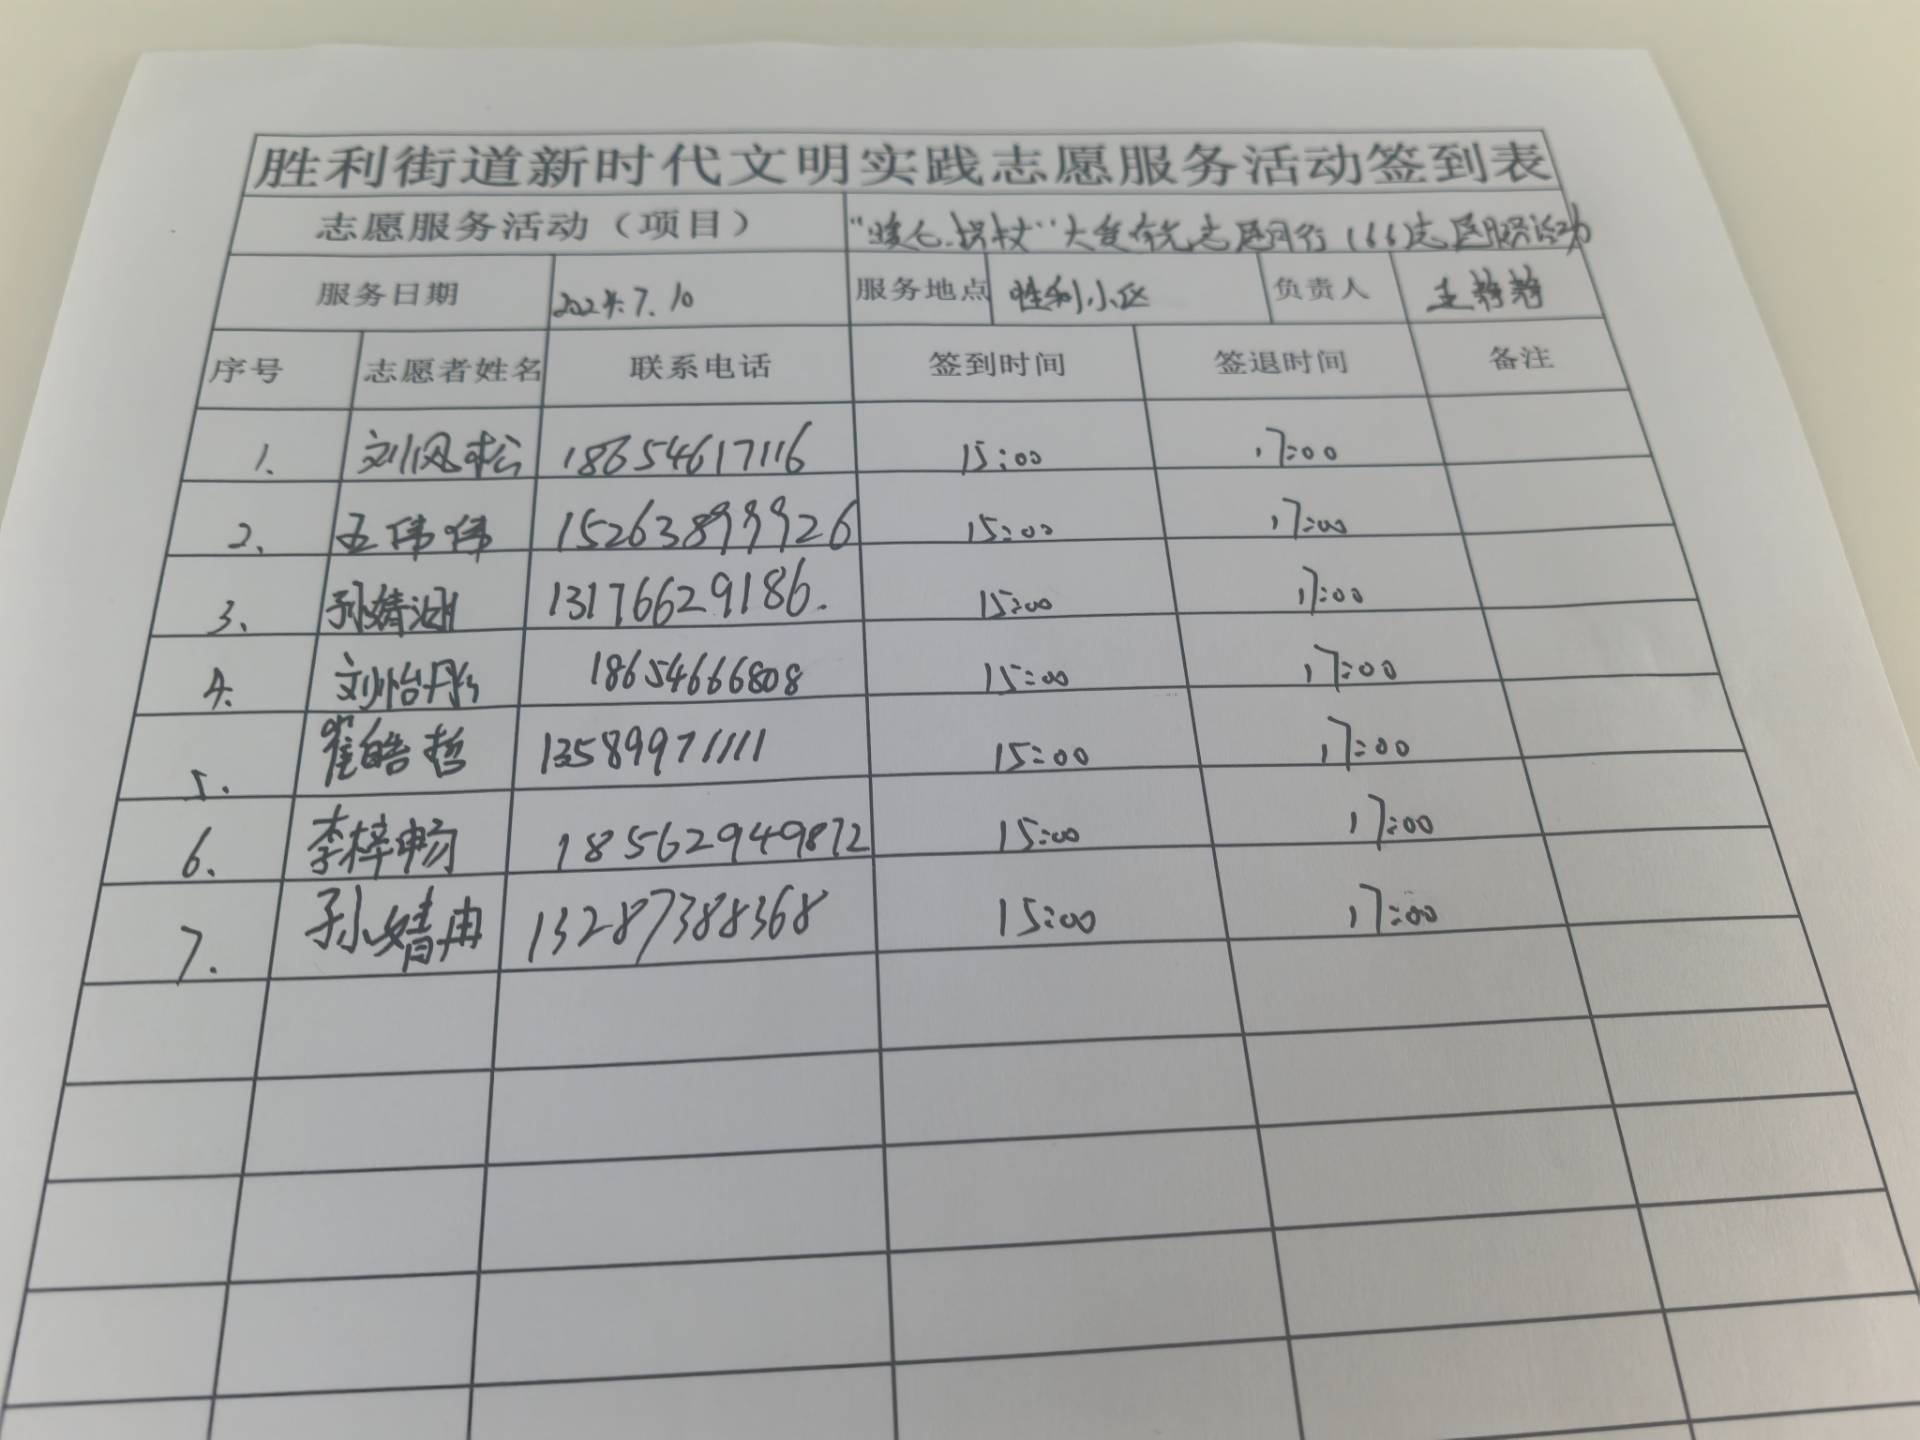 胜利街道新时代文明实践志愿服务活动签到表
志愿服务活动（项目） "暖心拐杖"大爱有光志愿同行（66）志愿服务活动
服务日期 2024.7.10 服务地点 胜利小区 负责人 王静静
序号 志愿者姓名 联系电话 签到时间 签退时间 备注
1. 刘凤松 18654617116 15:00 17:00
2. 王伟伟 15263899926 15:00 17:00
3. 孙婧涵 13176629186. 15:00 17:00
4. 刘怡彤 18654666808 15:00 17:00
5. 崔皓哲 13589971111 15:00 17:00
6. 李梓畅 18562949872 15:00 17:00
7. 孙婧冉 13287388368 15:00 17:00